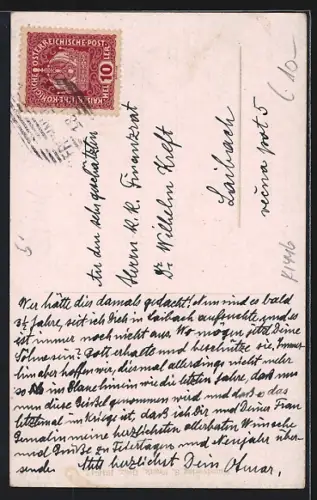 KAISERLICHE KÖNIGLICHE ÖSTERREICHISCHE POST
10 HELLER 10
(10—
An den sehr geschätzten
Herrn K. K. Finanzrat
Dr. Wilhelm Kreft
Laibach
večna pot 5
K1446
Wer hätte dies damals gedacht! Nun sind es bald
2½ Jahre, seit ich Dich in Laibach aufsuchte und es
ist immer noch nicht aus. Wo mögen jetzt Deine
Söhne sein? Gott erhalte und beschütze sie. Immer-
hin aber hoffen wir, diesmal allerdings nicht mehr
so ins Blaue hinein wie die letzten Jahre, daß uns
nun diese Geißel genommen wird und daß es das
letztemal im Kriege ist, daß ich Dir und Deiner Frau
Gemalin meine herzlichsten allerbesten Wünsche
und Grüße zu Feiertagen und Neujahr über-
sende. Stets herzlichst Dein Otmar.